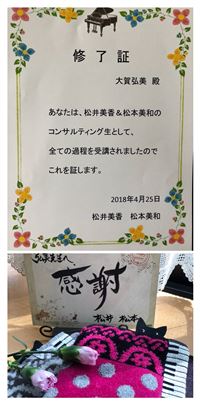 修了証
大賀弘美 殿
あなたは、松井美香＆松本美和の
コンサルティング生として、
全ての過程を受講されましたので
これを証します。
2018年4月25日
松井美香 松本美和
弘美先生へ
感謝
松井 松本